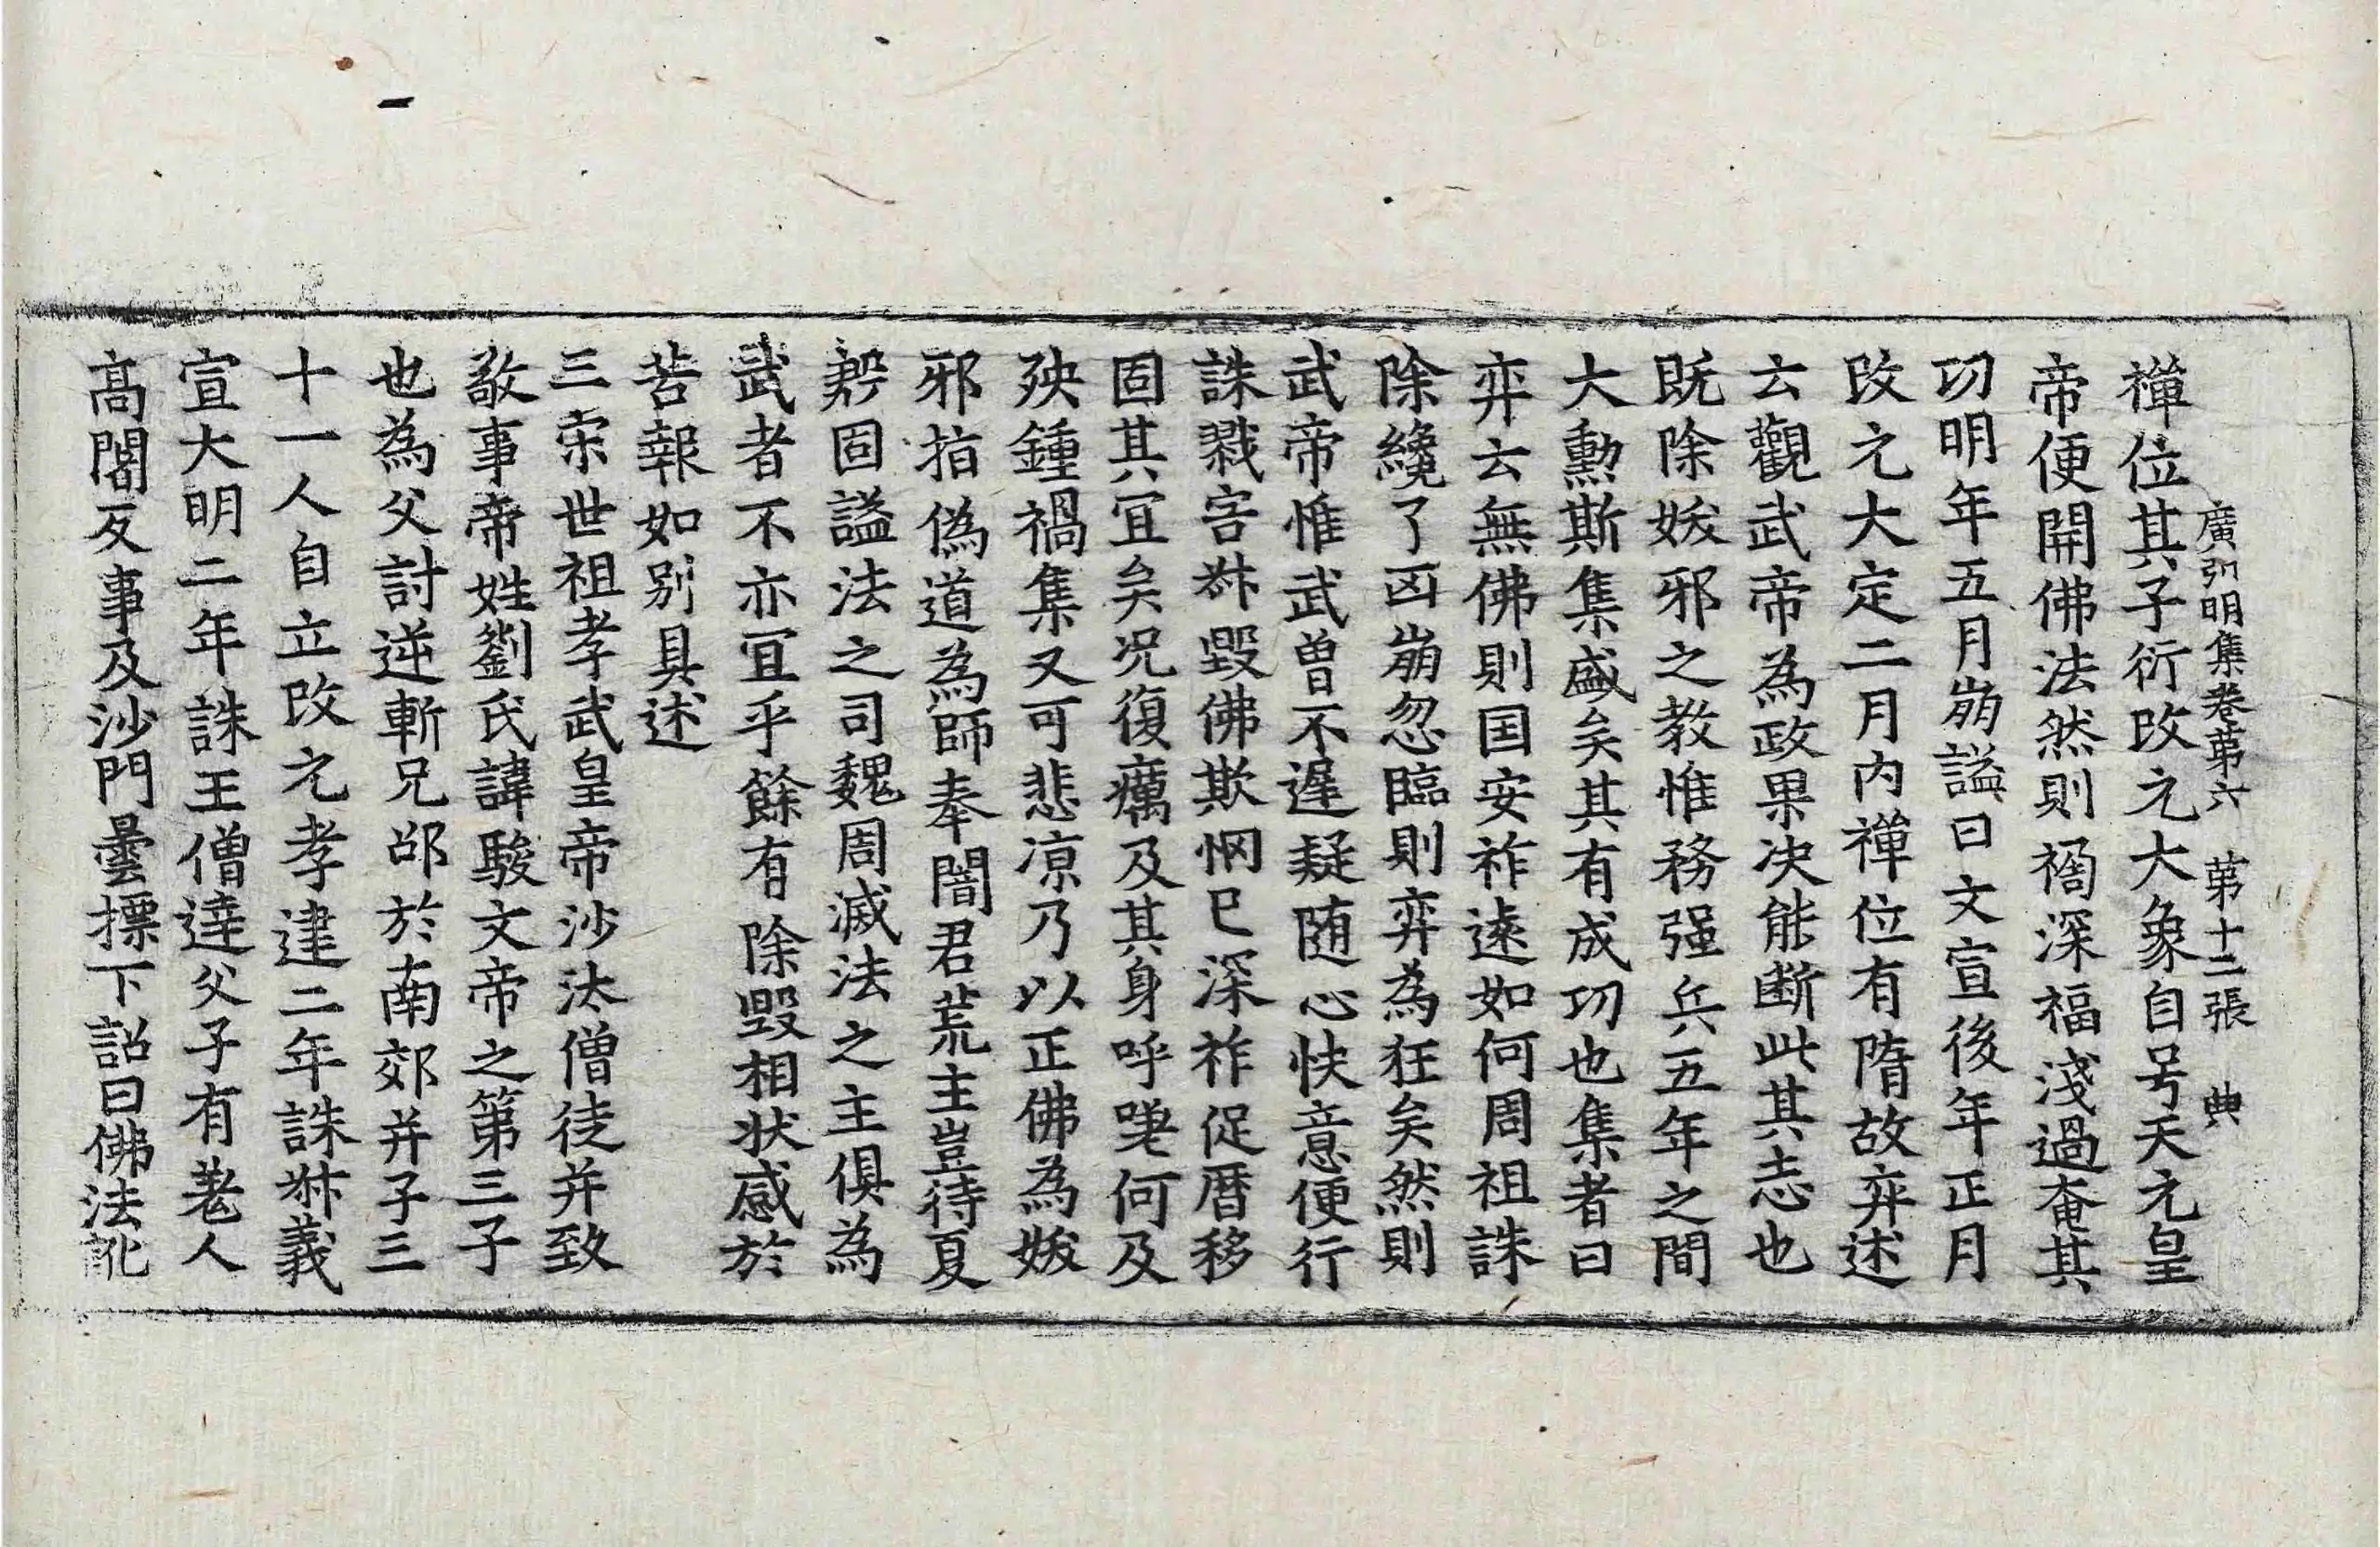 廣弘明集卷第六　第十二張　典
禪位其子衍改元大象自号天元皇
帝便開佛法然則禍深福淺過奄其
功明年五月崩謚曰文宣後年正月
改元大定二月內禪位有隋故弈述
云觀武帝為政果決能斷此其志也
既除妭邪之教惟務强兵五年之間
大勲斯集盛矣其有成功也集者曰
弈云無佛則国安祚遠如何周祖誅
除纔了凶崩忽臨則弈為狂矣然則
武帝惟武曾不遲疑随心快意便行
誅戮害叔毀佛欺惘已深祚促曆移
固其冝矣况復癘及其身呼嗟何及
殃鍾禍集又可悲凉乃以正佛為妭
邪指偽道為師奉闇君荒主豈待夏
殷固謚法之司魏周滅法之主俱為
武者不亦冝乎餘有除毀相状感於
苦報如别具述
三宋世祖孝武皇帝沙汰僧徒并致
敬事帝姓劉氏諱駿文帝之第三子
也為父討逆斬兄邵於南郊并子三
十一人自立改元孝建二年誅叔義
宣大明二年誅王僧達父子有羌人
高闍反事及沙門曇摽下詔曰佛法訛